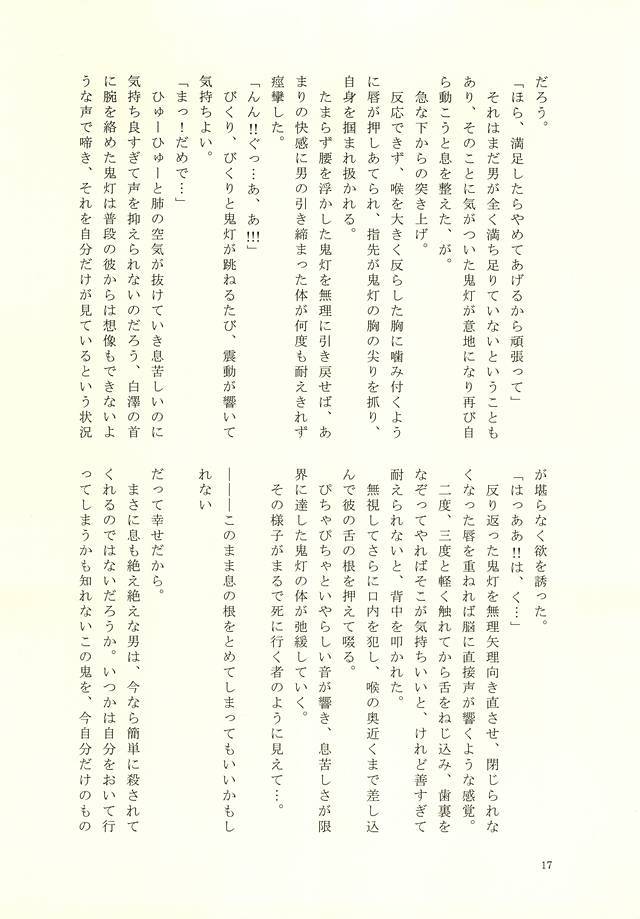 だろう。
「ほら、満足したらやめてあげるから頑張って」
それはまだ男が全く満ち足りていないということも
あり、そのことに気がついた鬼灯が意地になり再び自
ら動こうと息を整えた、が。
急な下からの突き上げ。
反応できず、喉を大きく反らした胸に噛み付くよう
に唇が押しあてられ、指先が鬼灯の胸の尖りを抓り、
自身を掴まれ扱かれる。
たまらず腰を浮かした鬼灯を無理に引き戻せば、あ
まりの快感に男の引き締まった体が何度も耐えきれず
痙攣した。
「んん!!ぐっ…あ、あ!!!」
びくり、びくりと鬼灯が跳ねるたび、震動が響いて
気持ちよい。
「まっ！だめで…」
ひゅーひゅーと肺の空気が抜けていき息苦しいのに
気持ち良すぎて声を抑えられないのだろう、白澤の首
に腕を絡めた鬼灯は普段の彼からは想像もできないよ
うな声で啼き、それを自分だけが見ているという状況
が堪らなく欲を誘った。
「はっああ!!は、く…」
反り返った鬼灯を無理矢理向き直させ、閉じられな
くなった唇を重ねれば脳に直接声が響くような感覚。
二度、三度と軽く触れてから舌をねじ込み、歯裏を
なぞってやればそこが気持ちいいと、けれど善すぎて
耐えられないと、背中を叩かれた。
無視してさらに口内を犯し、喉の奥近くまで差し込
んで彼の舌の根を押えて啜る。
ぴちゃぴちゃといやらしい音が響き、息苦しさが限
界に達した鬼灯の体が弛緩していく。
その様子がまるで死に行く者のように見えて…。
―――このまま息の根をとめてしまってもいいかもし
れない
だって幸せだから。
まさに息も絶え絶えな男は、今なら簡単に殺されて
くれるのではないだろうか。いつかは自分をおいて行
ってしまうかも知れないこの鬼を、今自分だけのもの
17